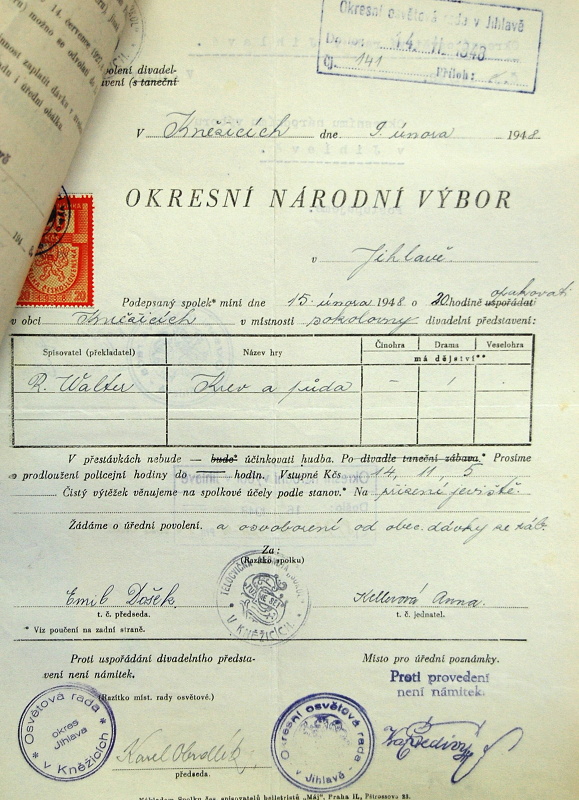 Okresní osvětová rada v Jihlavě
14. II. 1948
Čj. 141 Příloh:
volení divadel-
vení (s taneční
V Kněžicích dne 9. února 1948
OKRESNÍ NÁRODNÍ VÝBOR
v Jihlavě
Podepsaný spolek* míní dne 15. února 1948 o 20 hodině uspořádat opakovati
v obci Kněžicích v místnosti sokolovny divadelní představení:
Spisovatel (překladatel) Název hry Činohra Drama Veselohra
má dějství**
R. Walter Krev a půda – 1 .
V přestávkách nebude — bude* účinkovati hudba. Po divadle taneční zábava.* Prosíme
o prodloužení policejní hodiny do — hodin. Vstupné Kčs 14, 11, 5
Čistý výtěžek věnujeme na spolkové účely podle stanov.* Na přízení jeviště.
Žádáme o úřední povolení. a osvobození od obec. dávky ze záb.
Za:
(Razítko spolku)
V KNĚŽICÍCH
Emil Došek Kellerová Anna.
t. č. předseda. t. č. jednatel.
* Viz poučení na zadní straně.
Proti uspořádání divadelního předsta-
vení není námitek.
Místo pro úřední poznámky.
Proti provedení
není námitek.
(Razítko míst. rady osvětové.)
Osvětová rada
okres
Jihlava
v Kněžicích
Okresní osvětová rada
v Jihlavě
Karel Obrdlík
předseda.
Nákladem Spolku čes. spisovatelů beletristů „Máj", Praha II., Pštrossova 23.